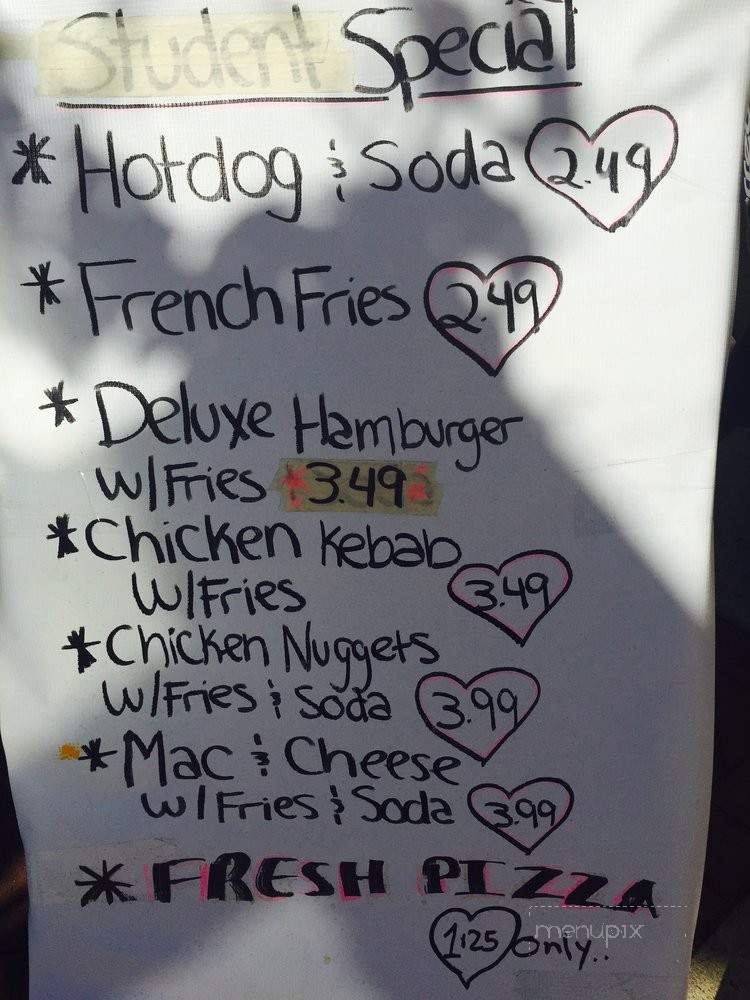 Student Special
* Hotdog & Soda 2.49
* French Fries 2.49
* Deluxe Hamburger
W/Fries 3.49
* Chicken Kebab
W/Fries 3.49
* Chicken Nuggets
W/Fries & Soda 3.99
* Mac & Cheese
W/Fries & Soda 3.99
* FRESH PIZZA
1.25 only..
menupix